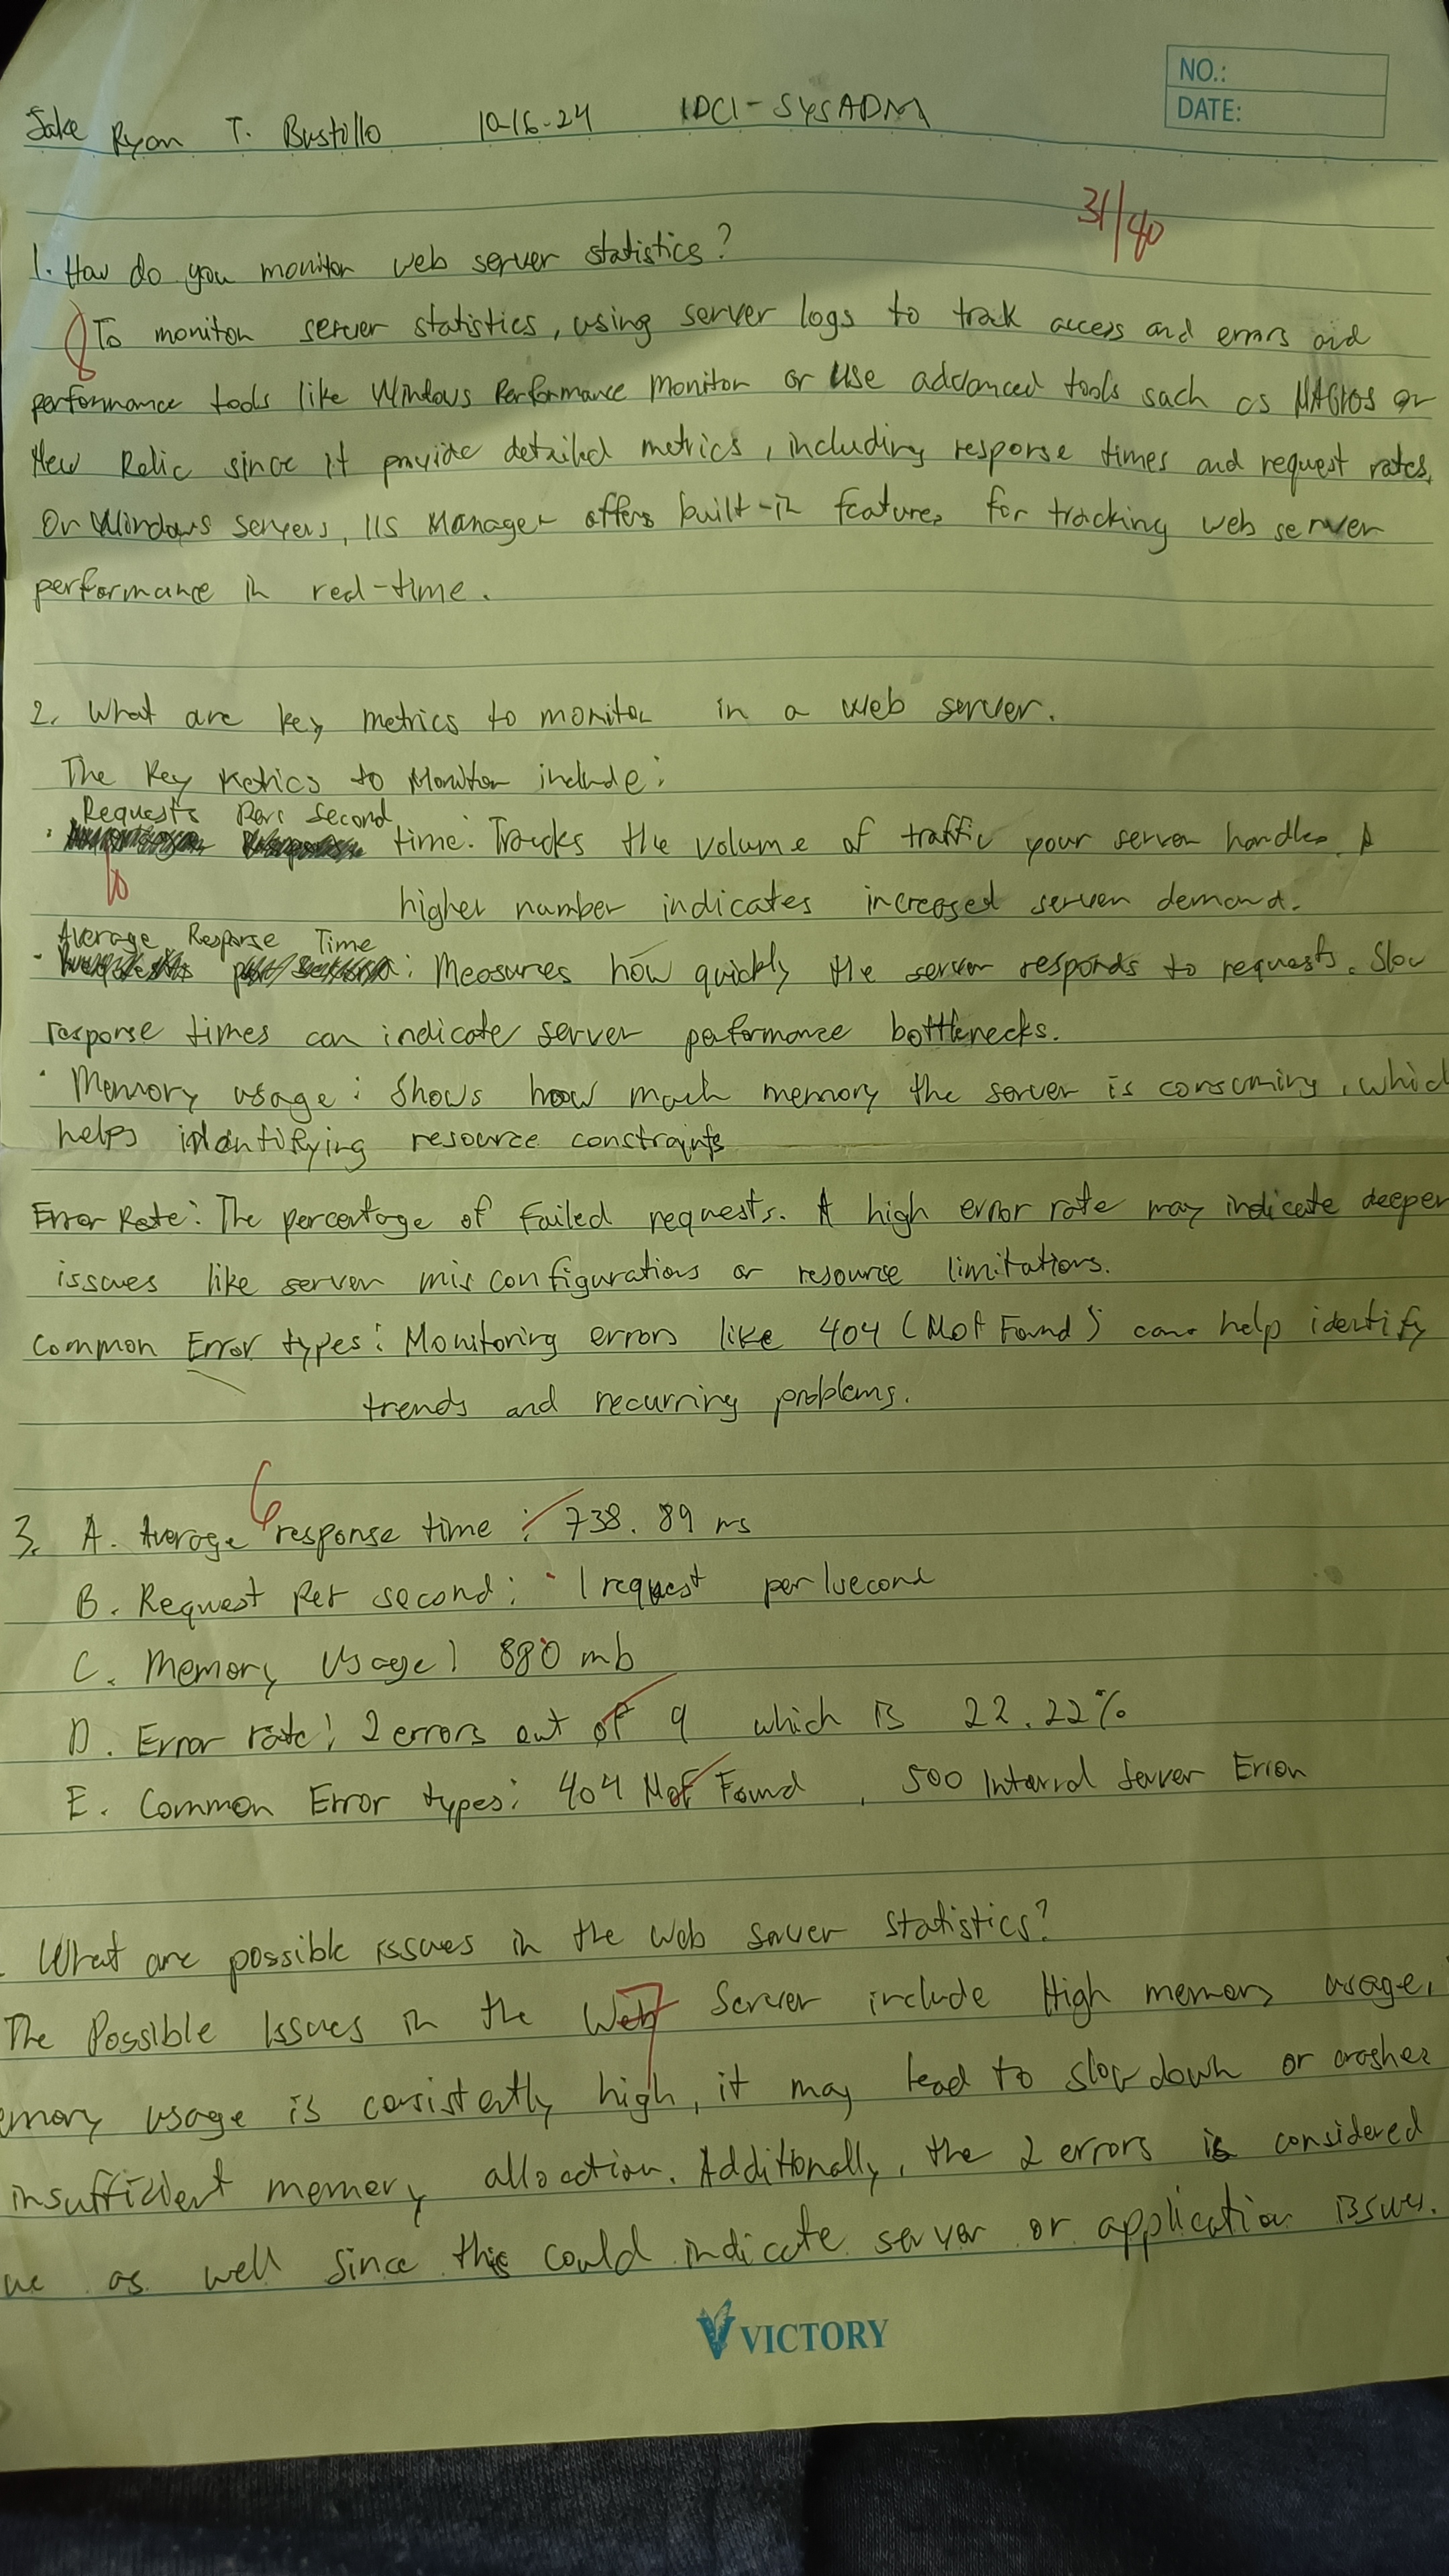 NO.:
DATE:
Jake Ryan T. Bustillo 10-16-24 IDC1-SYSADM
31/40
1. How do you monitor web server statistics?
8
To monitor server statistics, using server logs to track access and errors and
performance tools like Windows Performance Monitor or use advanced tools such as NAGIOS or
New Relic since it provide detailed metrics, including response times and request rates.
On Windows servers, IIS Manager offers built-in features for tracking web server
performance in real-time.
2. What are key metrics to monitor in a web server.
The Key Metrics to Monitor include:
Requests Per Second
· time: Tracks the volume of traffic your server handles. A
10
higher number indicates increased server demand.
Average Response Time
· : Measures how quickly the server responds to requests. Slow
response times can indicate server performance bottlenecks.
· Memory usage: Shows how much memory the server is consuming, which
helps identifying resource constraints
Error Rate: The percentage of failed requests. A high error rate may indicate deeper
issues like server misconfigurations or resource limitations.
Common Error types: Monitoring errors like 404 (Not Found) can help identify
trends and recurring problems.
6
3. A. Average response time: 738.89 ms
B. Request Per second: 1 request per 1second
C. Memory Usage: 880 mb
D. Error rate: 2 errors out of 9 which is 22.22%
E. Common Error types: 404 Not Found, 500 Internal Server Error
What are possible issues in the Web Server statistics?
7
The Possible Issues in the Web Server include High memory usage,
emory usage is consistently high, it may lead to slow down or crashes
insufficient memory allocation. Additionally, the 2 errors is considered
ue as well since this could indicate server or application issues.
VICTORY